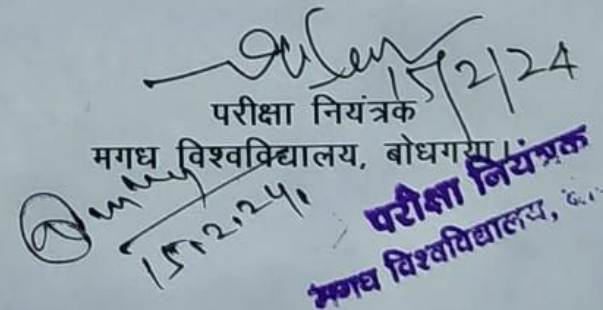 15/2/24
परीक्षा नियंत्रक
मगध विश्वविद्यालय, बोधगया।
15.2.24.
परीक्षा नियंत्रक
मगध विश्वविद्यालय,